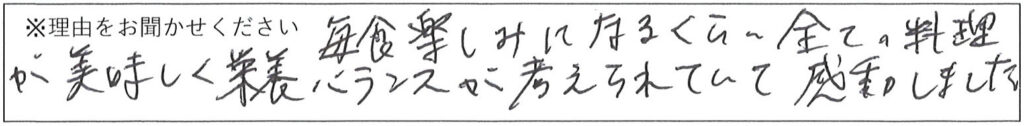 ※理由をお聞かせください 毎食楽しみになるくらい全ての料理
が美味しく栄養バランスが考えられていて感動しました